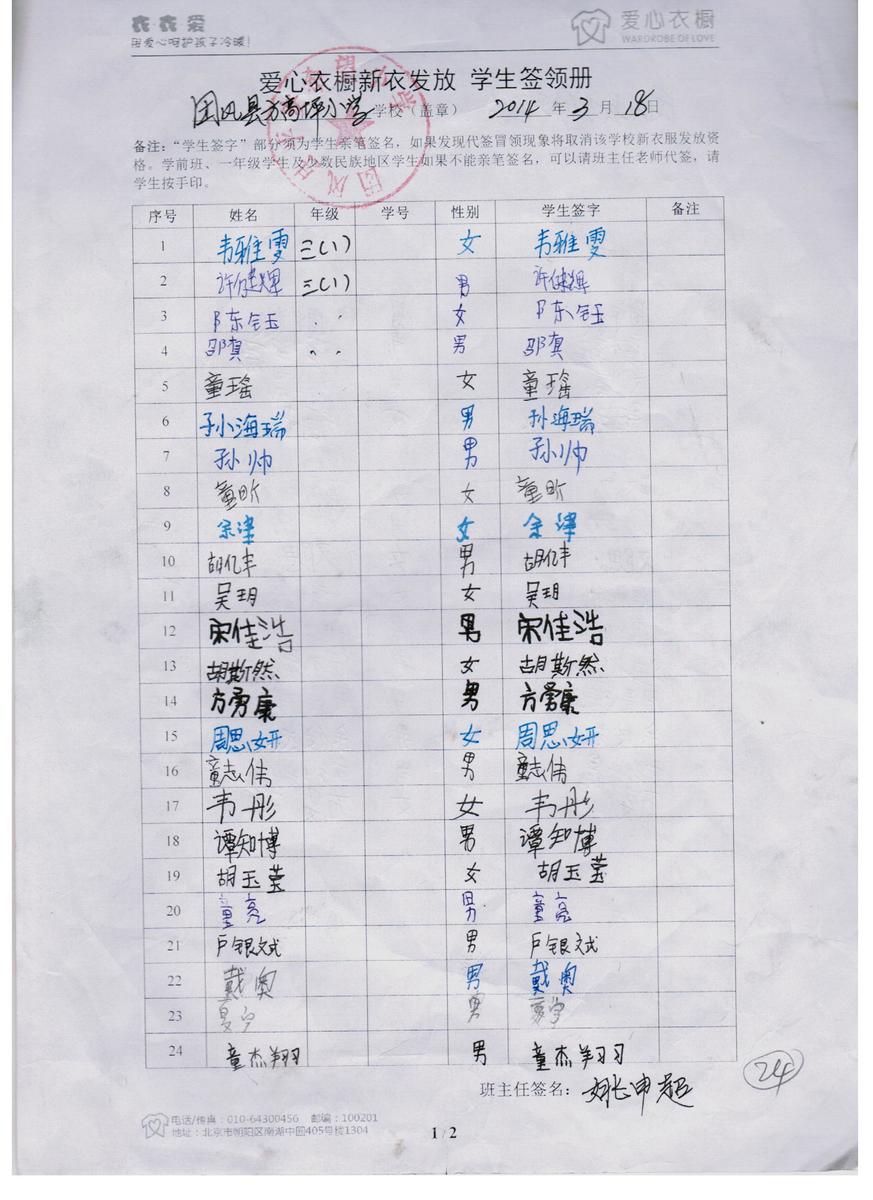 衣衣爱 爱心衣橱
用爱心呵护孩子冷暖! WARDROBE OF LOVE
爱心衣橱新衣发放 学生签领册
团风县方高坪小学 学校（盖章） 2014 年 3 月 18 日
备注：“学生签字”部分须为学生亲笔签名，如果发现代签冒领现象将取消该学校新衣服发放资
格。学前班、一年级学生及少数民族地区学生如果不能亲笔签名，可以请班主任老师代签，请
学生按手印。
序号 姓名 年级 学号 性别 学生签字 备注
1 韦雅雯 三(1) 女 韦雅雯
2 许健辉 三(1) 男 许健辉
3 陈东钰 〃 女 陈东钰
4 邵真 〃 男 邵真
5 童瑶 女 童瑶
6 孙海瑞 男 孙海瑞
7 孙帅 男 孙帅
8 童昕 女 童昕
9 余津 女 余津
10 胡亿丰 男 胡亿丰
11 吴玥 女 吴玥
12 宋佳浩 男 宋佳浩
13 胡斯然 女 胡斯然
14 方勇康 男 方勇康
15 周思妍 女 周思妍
16 童志伟 男 童志伟
17 韦彤 女 韦彤
18 谭知博 男 谭知博
19 胡玉莹 女 胡玉莹
20 童亮 男 童亮
21 卢银斌 男 卢银斌
22 戴奥 男 戴奥
23 夏宇 男 夏宇
24 童杰翔 男 童杰翔
班主任签名： 姚申超
24
电话/传真：010-64300456 邮编：100201
地址：北京市朝阳区南湖中园405号楼1304
1 / 2